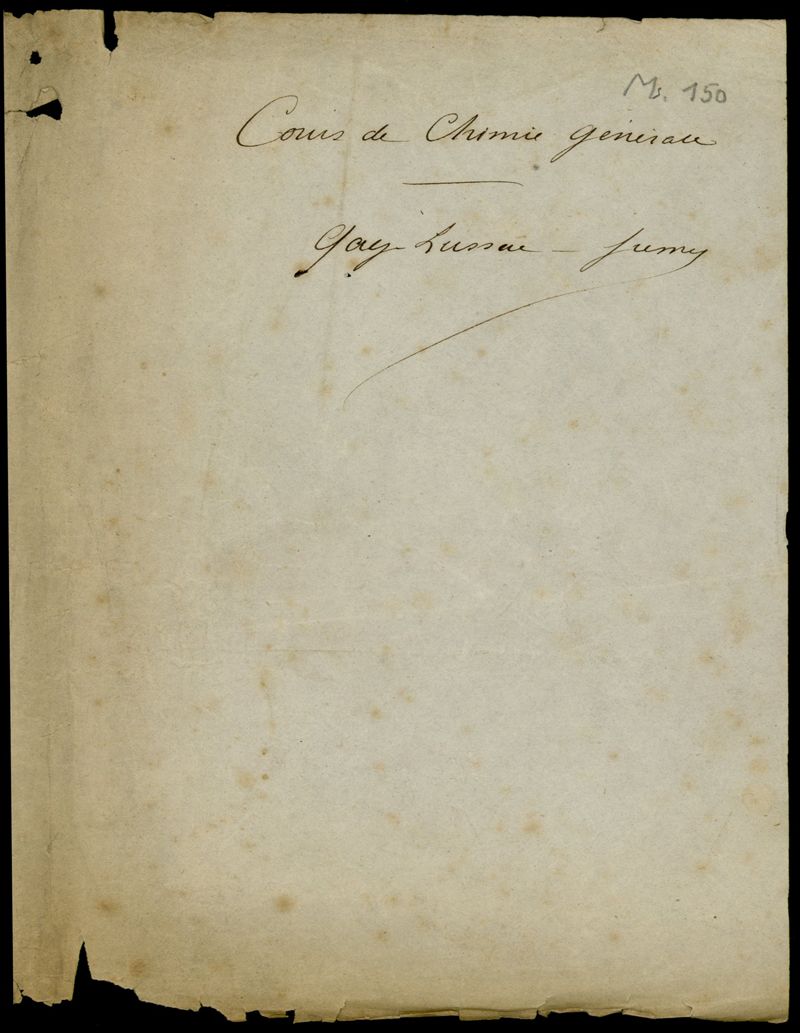 Ms. 150
Cours de Chimie générale
Gay-Lussac – Fremy